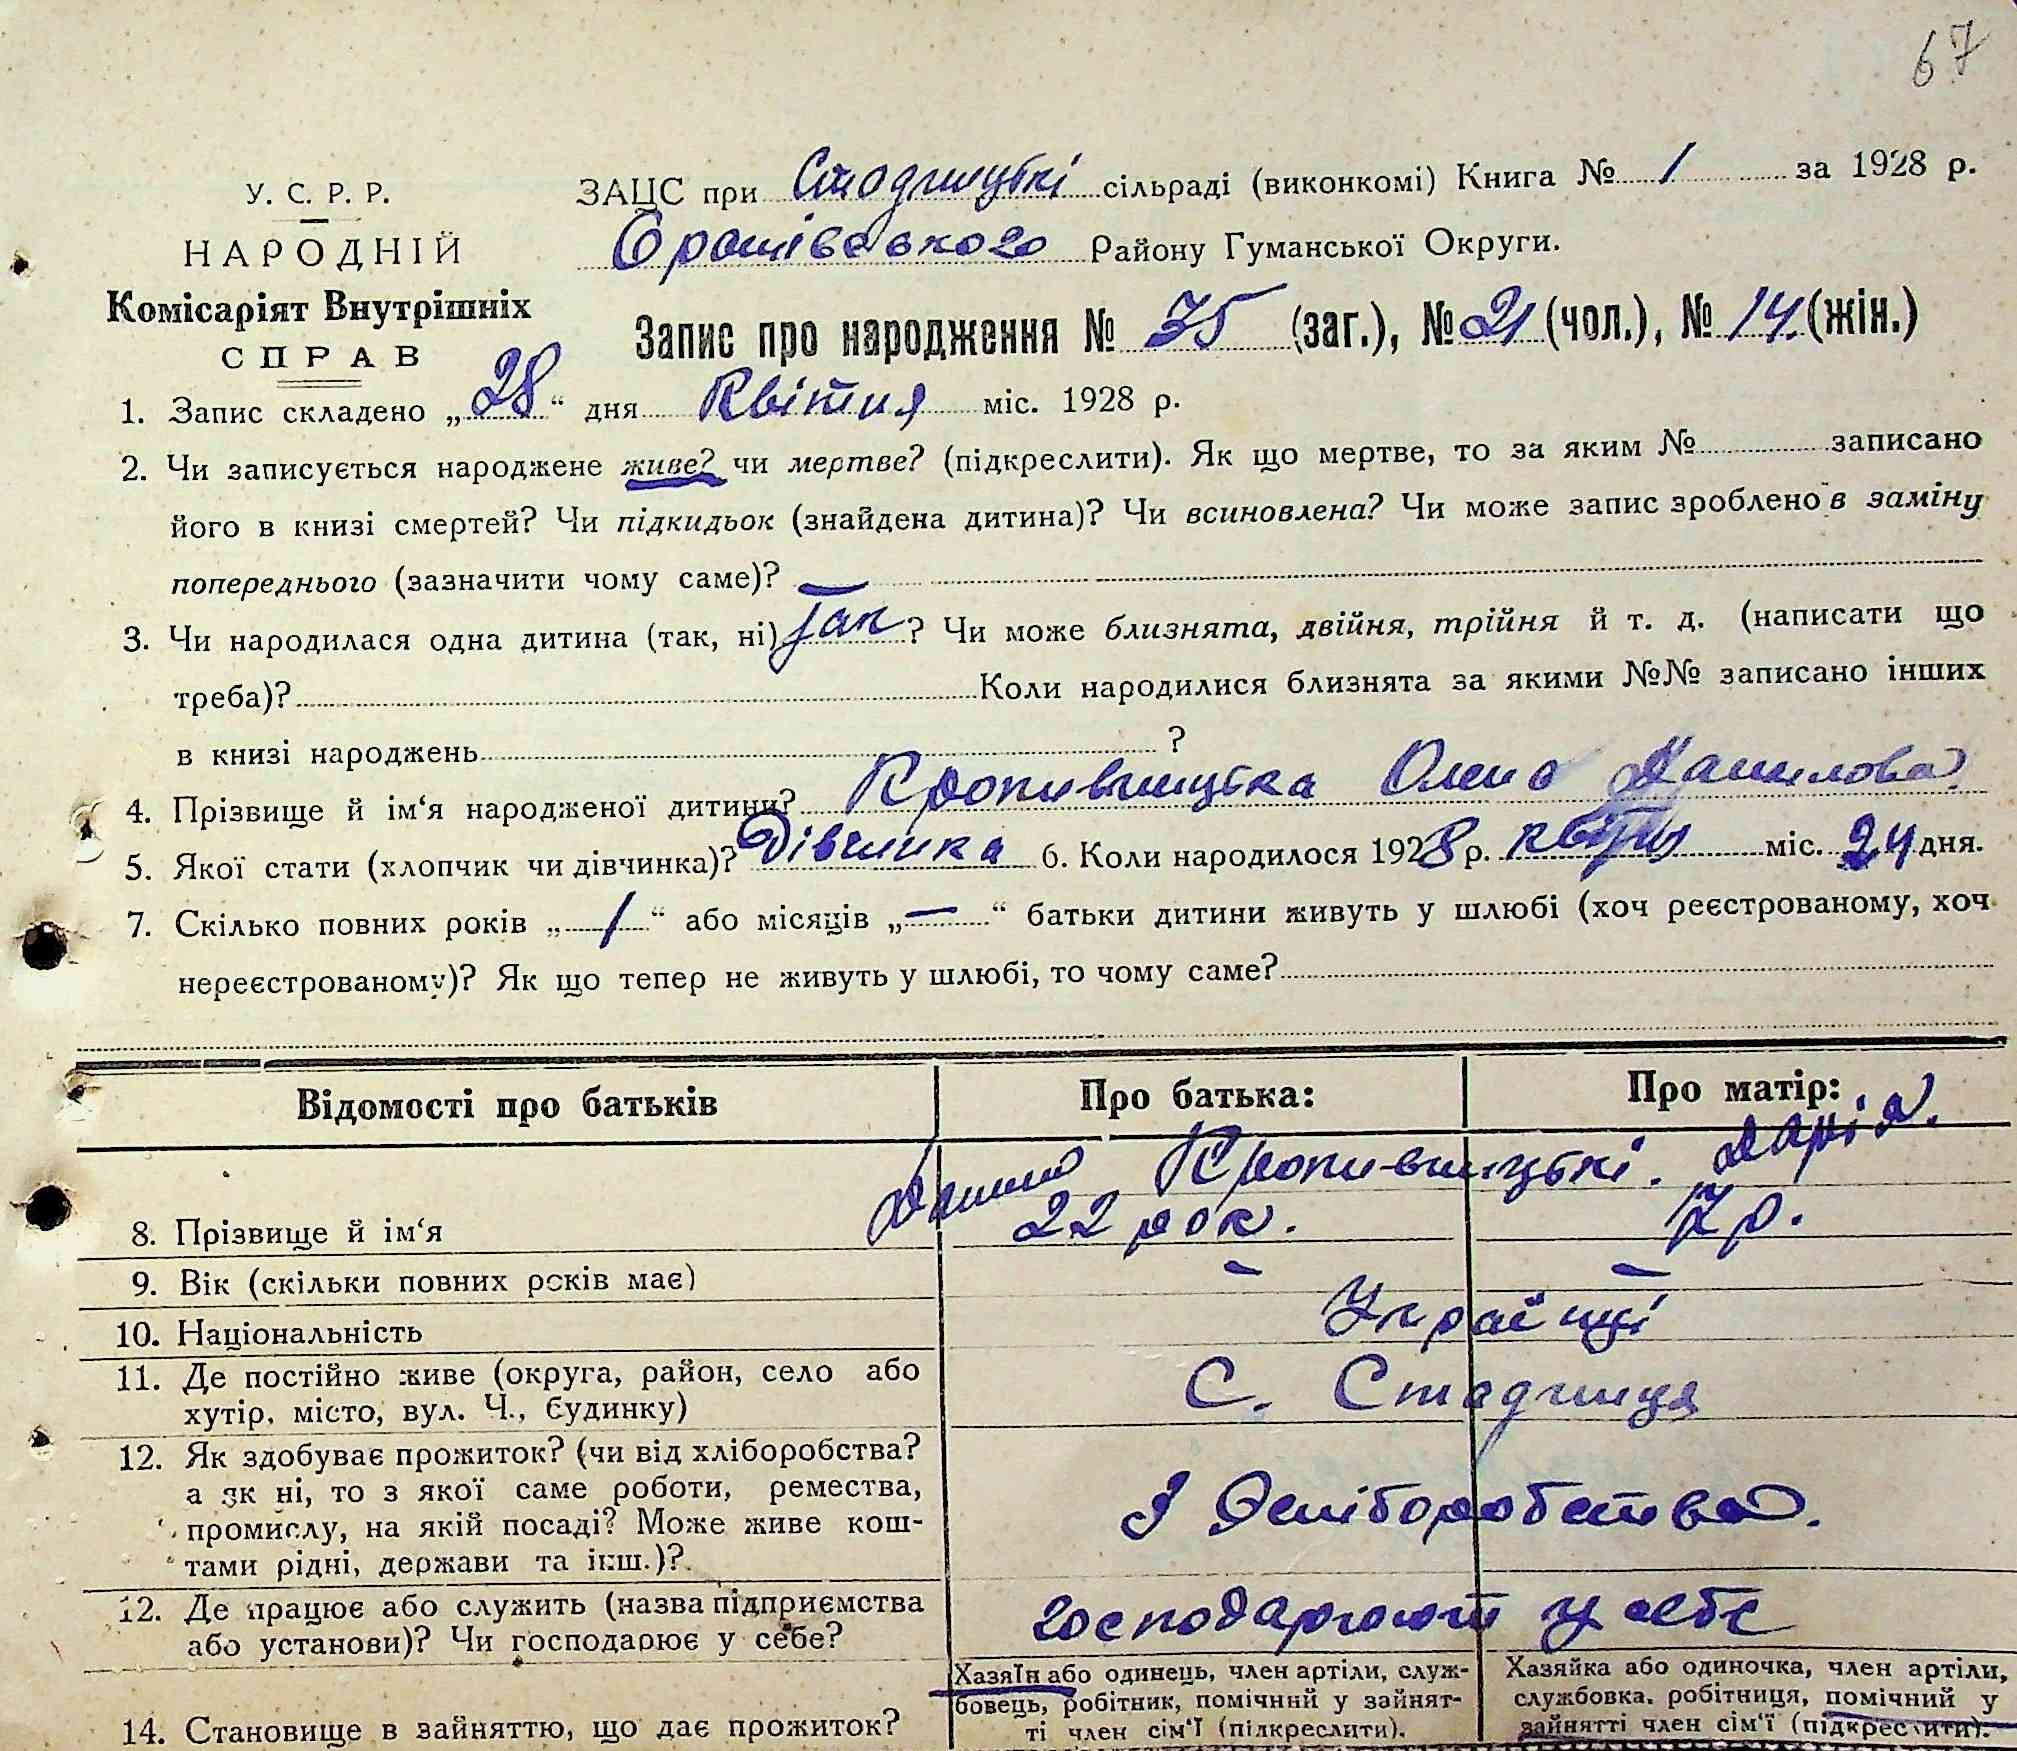 67
У. С. Р. Р.
НАРОДНІЙ
Комісаріят Внутрішніх
СПРАВ
ЗАЦС при Стадницькі сільраді (виконкомі) Книга № 1 за 1928 р.
Оратівського Району Гуманської Округи.
Запис про народження № 35 (заг.), № 21 (чол.), № 14. (жін.)
1. Запис складено „28“ дня Квітня міс. 1928 р.
2. Чи записується народжене живе? чи мертве? (підкреслити). Як що мертве, то за яким № записано
його в книзі смертей? Чи підкидьок (знайдена дитина)? Чи всиновлена? Чи може запис зроблено в заміну
попереднього (зазначити чому саме)? —
3. Чи народилася одна дитина (так, ні) Так ? Чи може близнята, двійня, трійня й т. д. (написати що
треба)? Коли народилися близнята за якими №№ записано інших
в книзі народжень ?
4. Прізвище й ім‘я народженої дитини? Кропивницька Олена Данилова.
5. Якої стати (хлопчик чи дівчинка)? Дівчинка 6. Коли народилося 1928 р. квітня міс. 24 дня.
7. Скілько повних років „1“ або місяців „—“ батьки дитини живуть у шлюбі (хоч реєстрованому, хоч
нереєстрованому)? Як що тепер не живуть у шлюбі, то чому саме?
Відомості про батьків Про батька: Про матір:
8. Прізвище й ім‘я Данило Кропивницькі. Дарія.
22 рок. р.
9. Вік (скільки повних років має) — —
10. Національність Українці
11. Де постійно живе (округа, район, село або
хутір, місто, вул. Ч., будинку) С. Стадниця
12. Як здобуває прожиток? (чи від хліборобства?
а як ні, то з якої саме роботи, ремества,
промислу, на якій посаді? Може живе кош-
тами рідні, держави та інш.)? З Хліборобства.
12. Де працює або служить (назва підприємства
або установи)? Чи господарює у себе? господарюют у себе
14. Становище в зайняттю, що дає прожиток?
Хазяїн або одинець, член артіли, служ-
бовець, робітник, помічний у зайнят-
ті член сім‘ї (підкреслити).
Хазяйка або одиночка, член артіли,
службовка, робітниця, помічний у
зайнятті член сім‘ї (підкреслити).